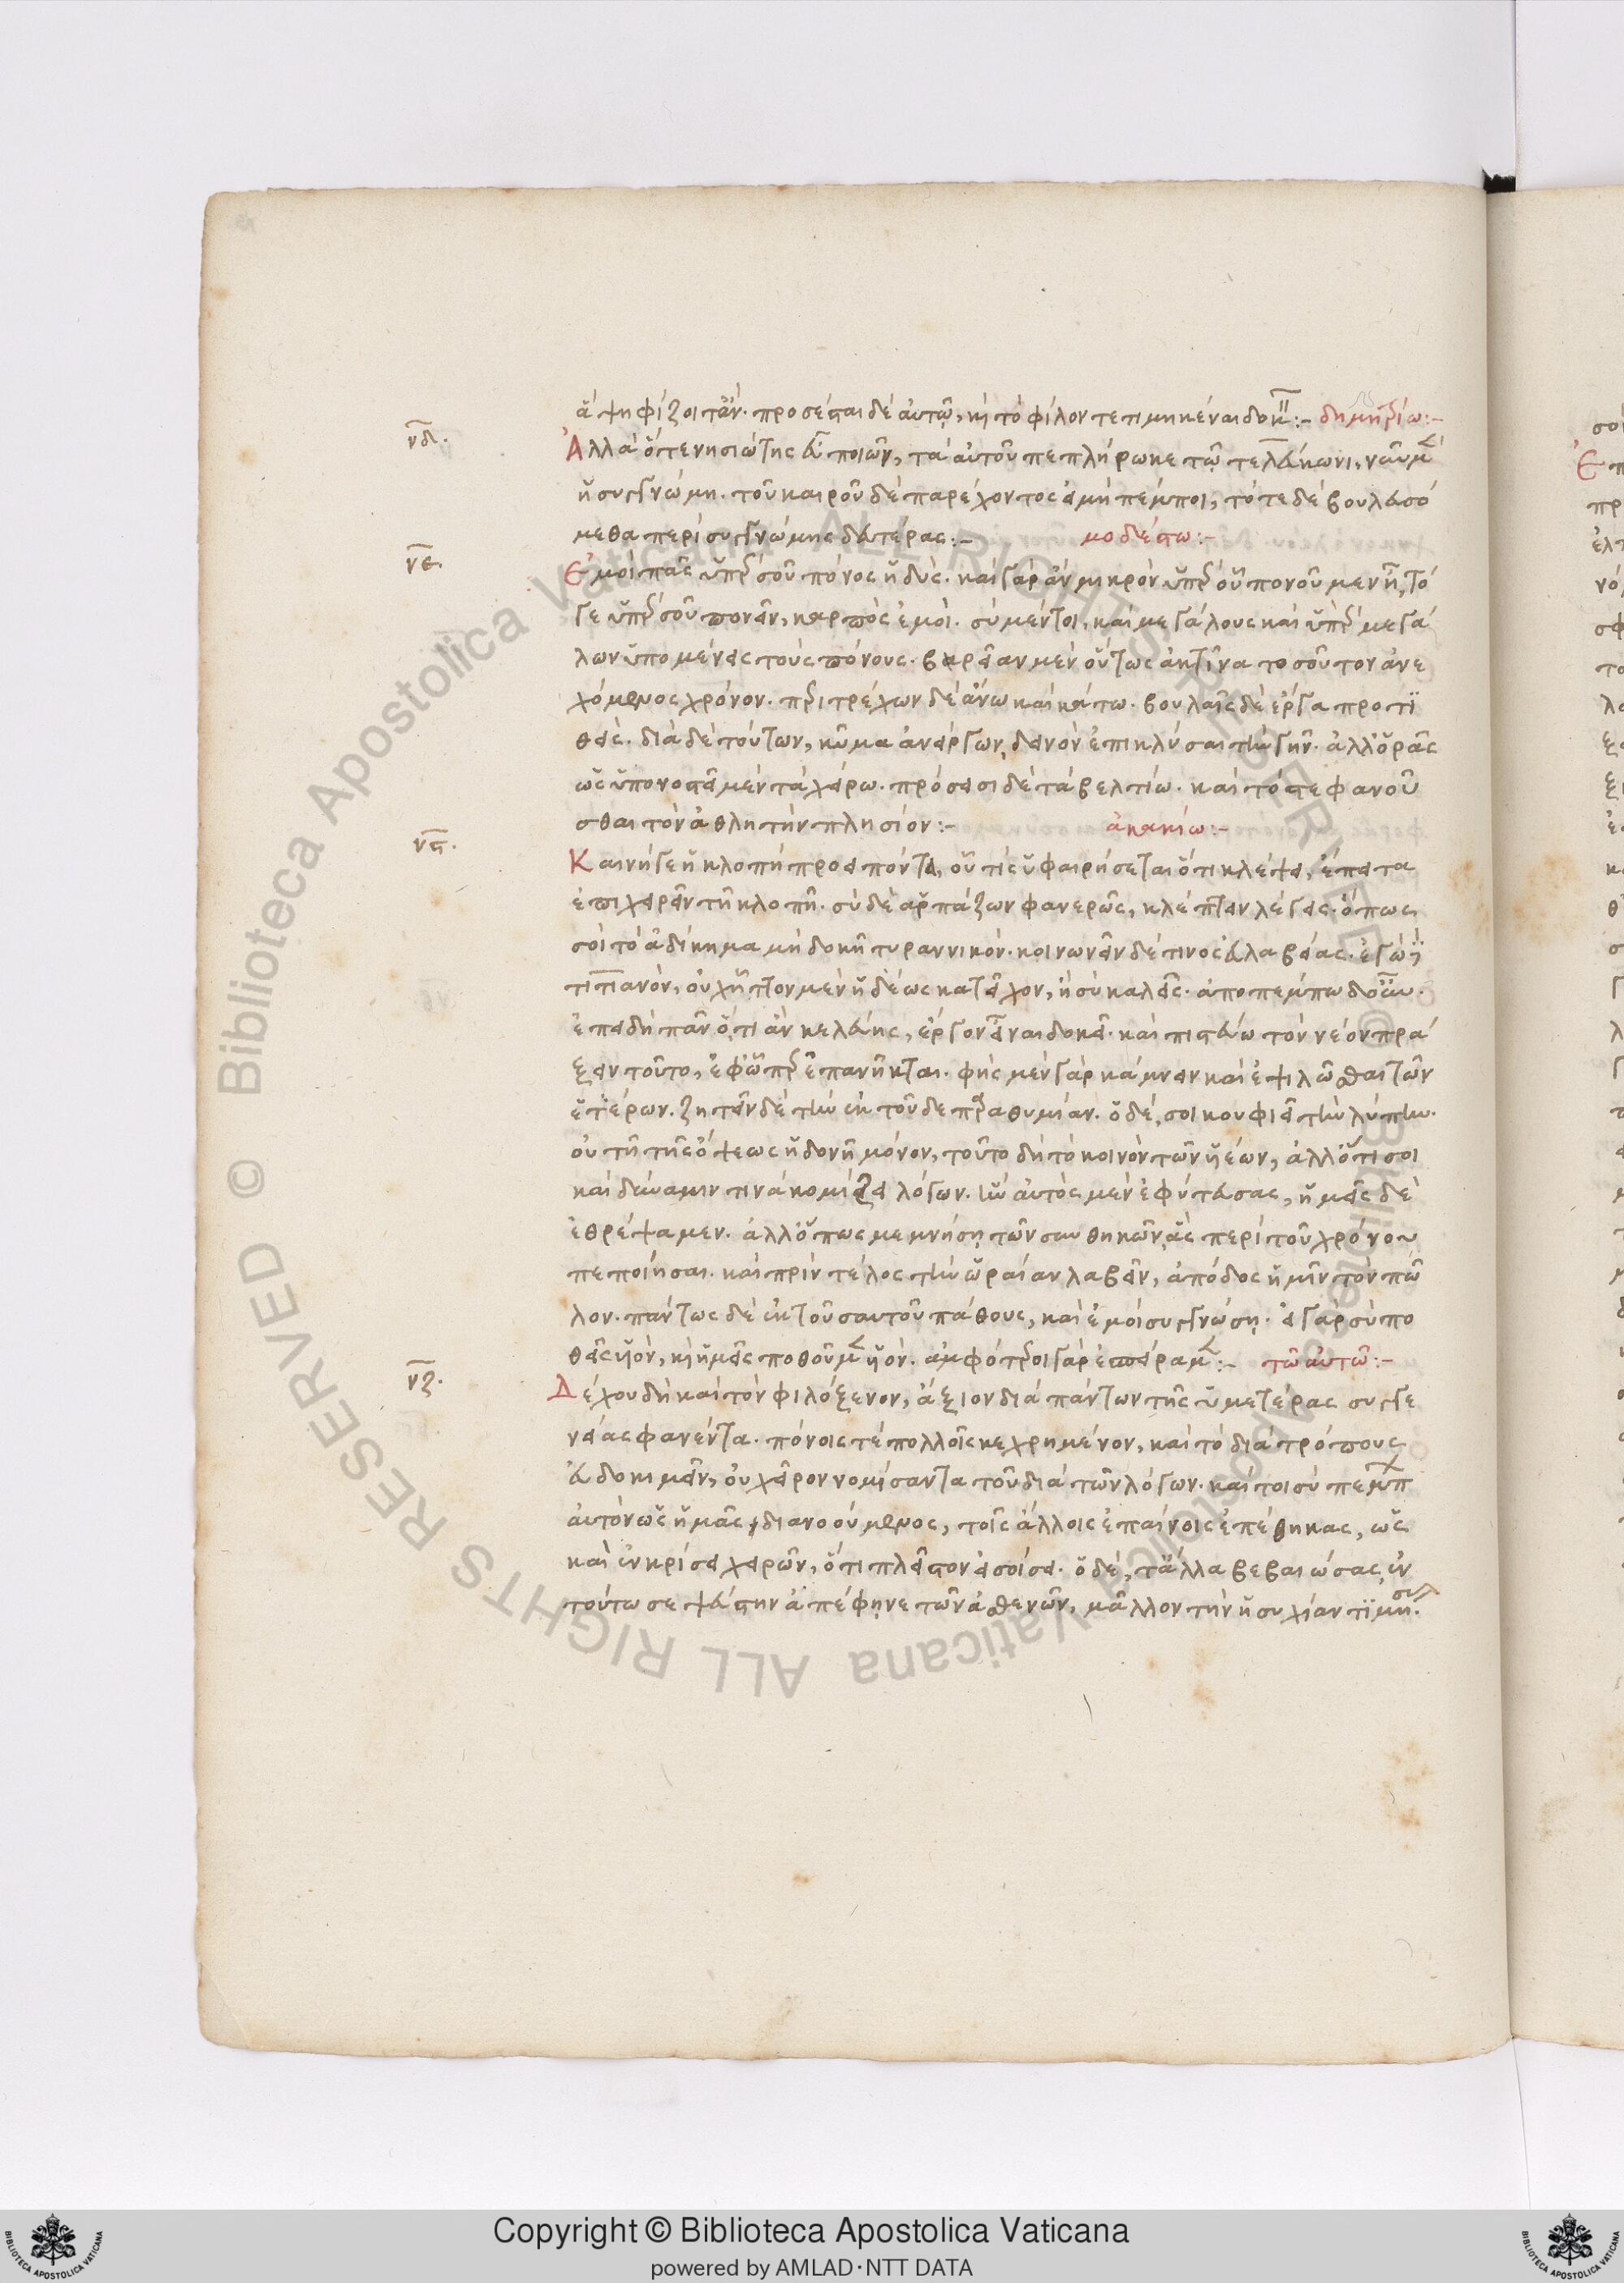 ἃ ψηφίζοιτ' ἄν. προσέσται δὲ αὐτῷ, κὶ τὸ φίλον τετιμηκέναι δοκεῖν:- δημητρίω:-
νδ. Ἀλλὰ ὅ τε νησιώτης εὖ ποιῶν, τὰ αὐτοῦ πεπλήρωκε τῷ
ἡ συγγνώμη. τοῦ καιροῦ δὲ παρέχοντος εἰ μὴ πέμποι, τότε δὲ βουλευσό
μεθα περὶ συγγνώμης δευτέρας:- μοδέστω:-
νε. Ἐμοὶ πᾶς ὑπὲρ σοῦ πόνος ἡδύς. καὶ γὰρ ἂν μικρὸν ὑπὲρ οὗ πονοῦμεν ᾖ, τό
γε ὑπὲρ σοῦ πονεῖν, καρπὸς ἐμοὶ. σὺ μέντοι, καὶ μεγάλους καὶ ὑπὲρ μεγά
λων ὑπομένεις τοὺς πόνους. βαρεῖαν μὲν οὕτως ἀκτῖνα τοσοῦτον ἀνε
χόμενος χρόνον. περιτρέχων δὲ ἄνω καὶ κάτω. βουλαῖς δὲ ἔργα προστι
θεὶς. διὰ δὲ τούτων, κῦμα ἀνείργων δεινὸν ἐπικλύσαι τὴν γῆν. ἀλλ' ὁρᾷς
ὡς ὑπονοστεῖ μὲν τὰ χείρω. πρόσεισι δὲ τὰ βελτίω. καὶ τὸ στεφανοῦ
σθαι τὸν ἀθλητὴν πλησίον:- ἀκακίω:-
νς. Καινή γε ἡ κλοπὴ προειπόντα, οὗ τις ὑφαιρήσεται ὅτι κλέψει, ἔπειτα
ἐπιχειρεῖν τῇ κλοπῇ. σὺ δὲ ἁρπάζων φανερῶς, κλέπτειν λέγεις. ὅπως
σοι τὸ ἀδίκημα μὴ δοκῇ τυραννικόν. κοινωνεῖν δέ τινος εὐλαβείας. ἐγὼ δὲ
τιτιανόν, οὐχ ἧττον μὲν ἡδέως κατεῖχον, ἢ σὺ καλεῖς. ἀποπέμπω δ' οὖν.
ἐπειδὴ πᾶν ὅ,τι ἂν κελεύῃς, ἔργον εἶναι δοκεῖ. καὶ πιστεύω τὸν νέον πρά
ξειν τοῦτο, ἐφ' ᾧπερ ἐπανῆκται. φῂς μὲν γὰρ κάμνειν καὶ ἐψιλῶσθαι τῶν
ἑτέρων. ζητεῖν δὲ τὴν ἐκ τοῦδε παραθυμίαν. ὁ δέ, σοι κουφιεῖ τὴν λύπην.
οὐ τῇ τῆς ὄψεως ἡδονῇ μόνον, τοῦτο δὴ τὸ κοινὸν τῶν υἱέων, ἀλλ' ὅτι σοι
καὶ δύναμίν τινα κομίζει λόγων. ἣν αὐτὸς μὲν ἐφύτευσας, ἡμεῖς δὲ
ἐθρέψαμεν. ἀλλ' ὅπως μεμνήσῃ τῶν συνθηκῶν, ἃς περὶ τοῦ χρόνου
πεποίησαι. καὶ πρὶν τέλος τὴν ὡραίαν λαβεῖν, ἀπόδος ἡμῖν τὸν πῶ
λον. πάντως δὲ ἐκ τοῦ σαυτοῦ πάθους, καὶ ἐμοὶ συγγνώσῃ. εἰ γὰρ σὺ πο
θεῖς υἱόν, κὶ ἡμεῖς ποθοῦμεν υἱόν. ἀμφότεροι γὰρ ἐσπείραμεν:- τῶ αὐτῶ:-
νζ. Δέχου δὴ καὶ τὸν φιλόξενον, ἄξιον διὰ πάντων τῆς ὑμετέρας συγγε
νείας φανέντα. πόνοις τὲ πολλοῖς κεχρημένον, καὶ τὸ διὰ τρόπους
εὐδοκιμεῖν, οὐ χεῖρον νομίσαντα τοῦ διὰ τῶν λόγων. καίτοι σὺ πέμπων
αὐτὸν ὡς ἡμᾶς διανοούμενος, τοῖς ἄλλοις ἐπαίνοις ἐπέθηκας, ὡς
καὶ ἐν κρίσει χαίρων, ὅτι πλεῖστον εἰσοίσει. ὁ δέ, τἄλλα βεβαιώσας, ἐν
τούτω σε ψεύστην ἀπέφηνε τῶν ἀσθενῶν, μᾶλλον τὴν ἡσυχίαν τιμήσας.
Copyright © Biblioteca Apostolica Vaticana
powered by AMLAD·NTT DATA